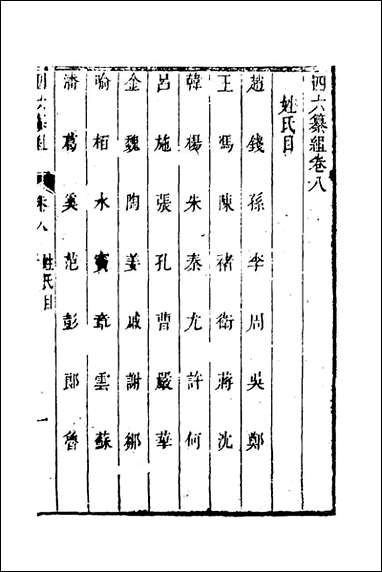 四六纂組卷八
姓氏目
趙錢孫李周吳鄭
王馮陳褚衛蔣沈
韓楊朱秦尤許何
呂施張孔曹嚴華
金魏陶姜戚謝鄒
喻柏水竇章雲蘇
潘葛奚范彭郎魯
四六纂組 卷八 姓氏目 一